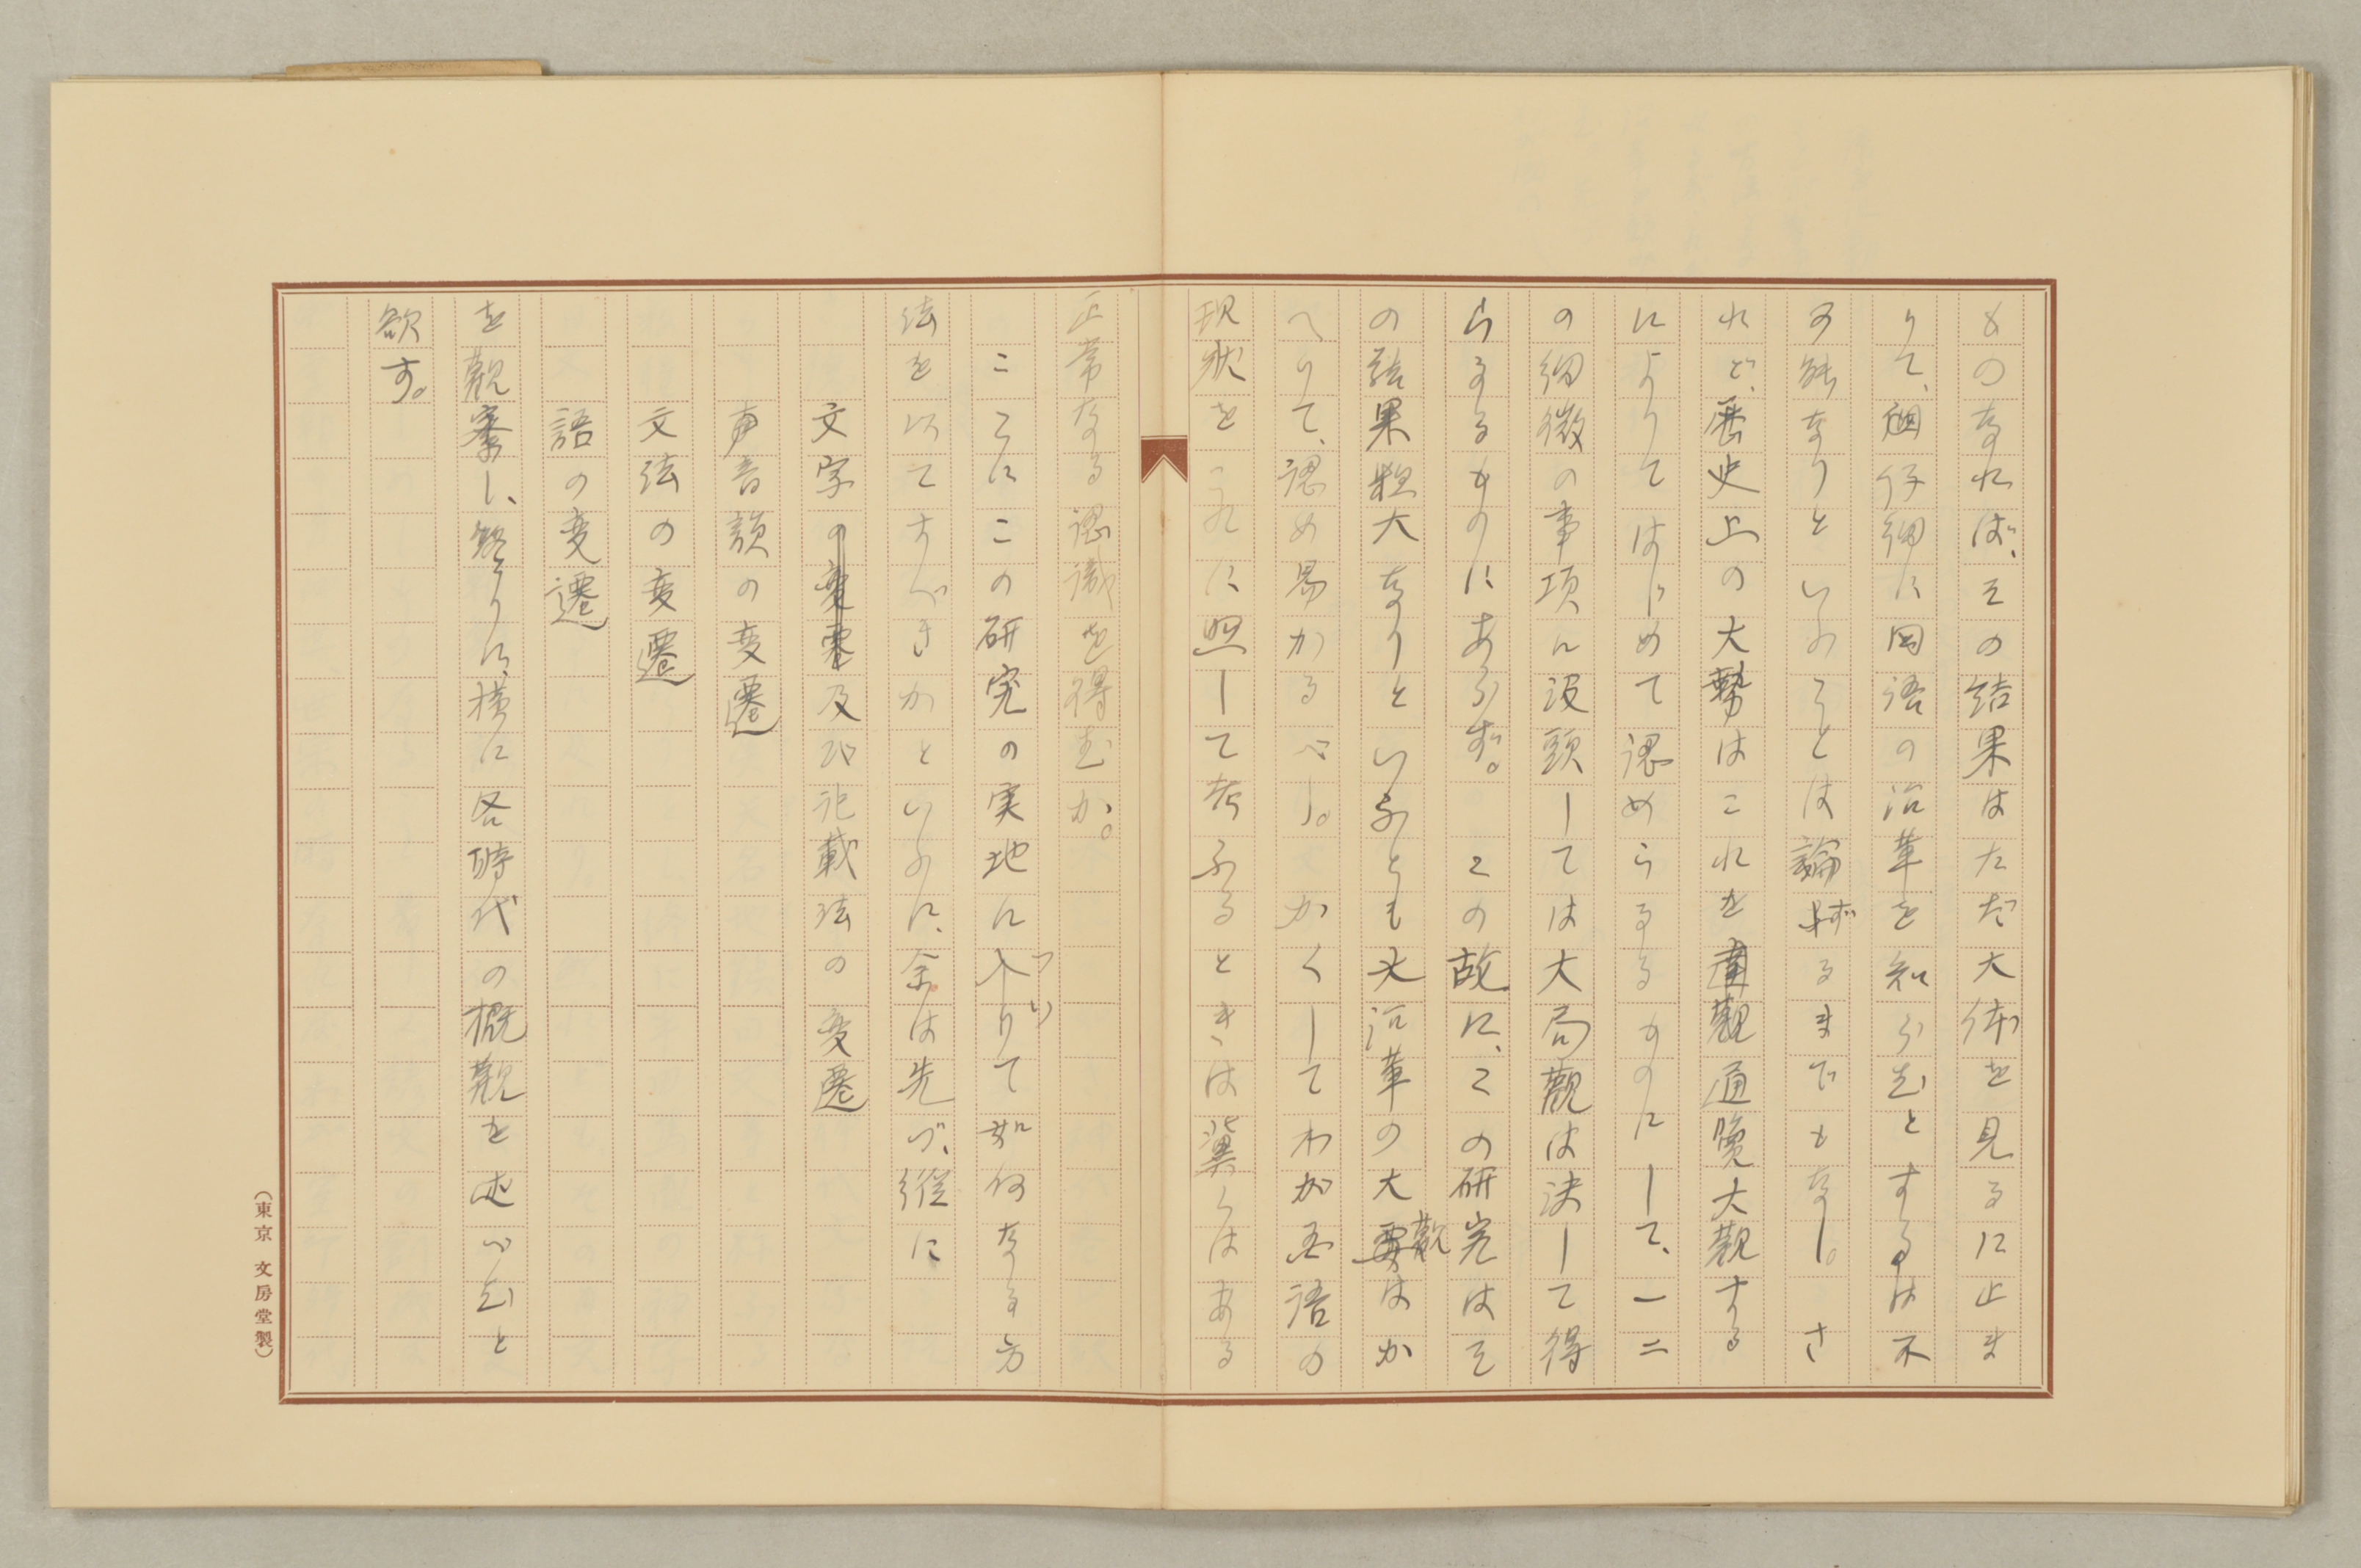 ものなれば、その結果はただ大体を見るに止ま
りて、細仔細に国語の沿革を知らむとするは不
可能なりといふことは論ずるまでもなし。さ
れど、歴史上の大勢はこれを直観通覧大観する
によりてはじめて認めらるるものにして、一二
の細微の事項に没頭しては大局観は決して得
らるるものにあらず。この故に、この研究はそ
の結果粗大なりといふとも大沿革の大観はか
へりて、認め易かるべし。かくしてわが国語の
現状をこれに照して考ふるときは冀くはある
正常なる認識を得むか。
ここにこの研究の実地に入りて如何なる方
法を以てすべきかといふに、余は先づ、縦に
文字の変遷及び記載法の変遷
声音韻の変遷
文法の変遷
語の変遷
を観察し、終りに、横に各時代の概観を述べむと
欲す。
(東京 文房堂製)